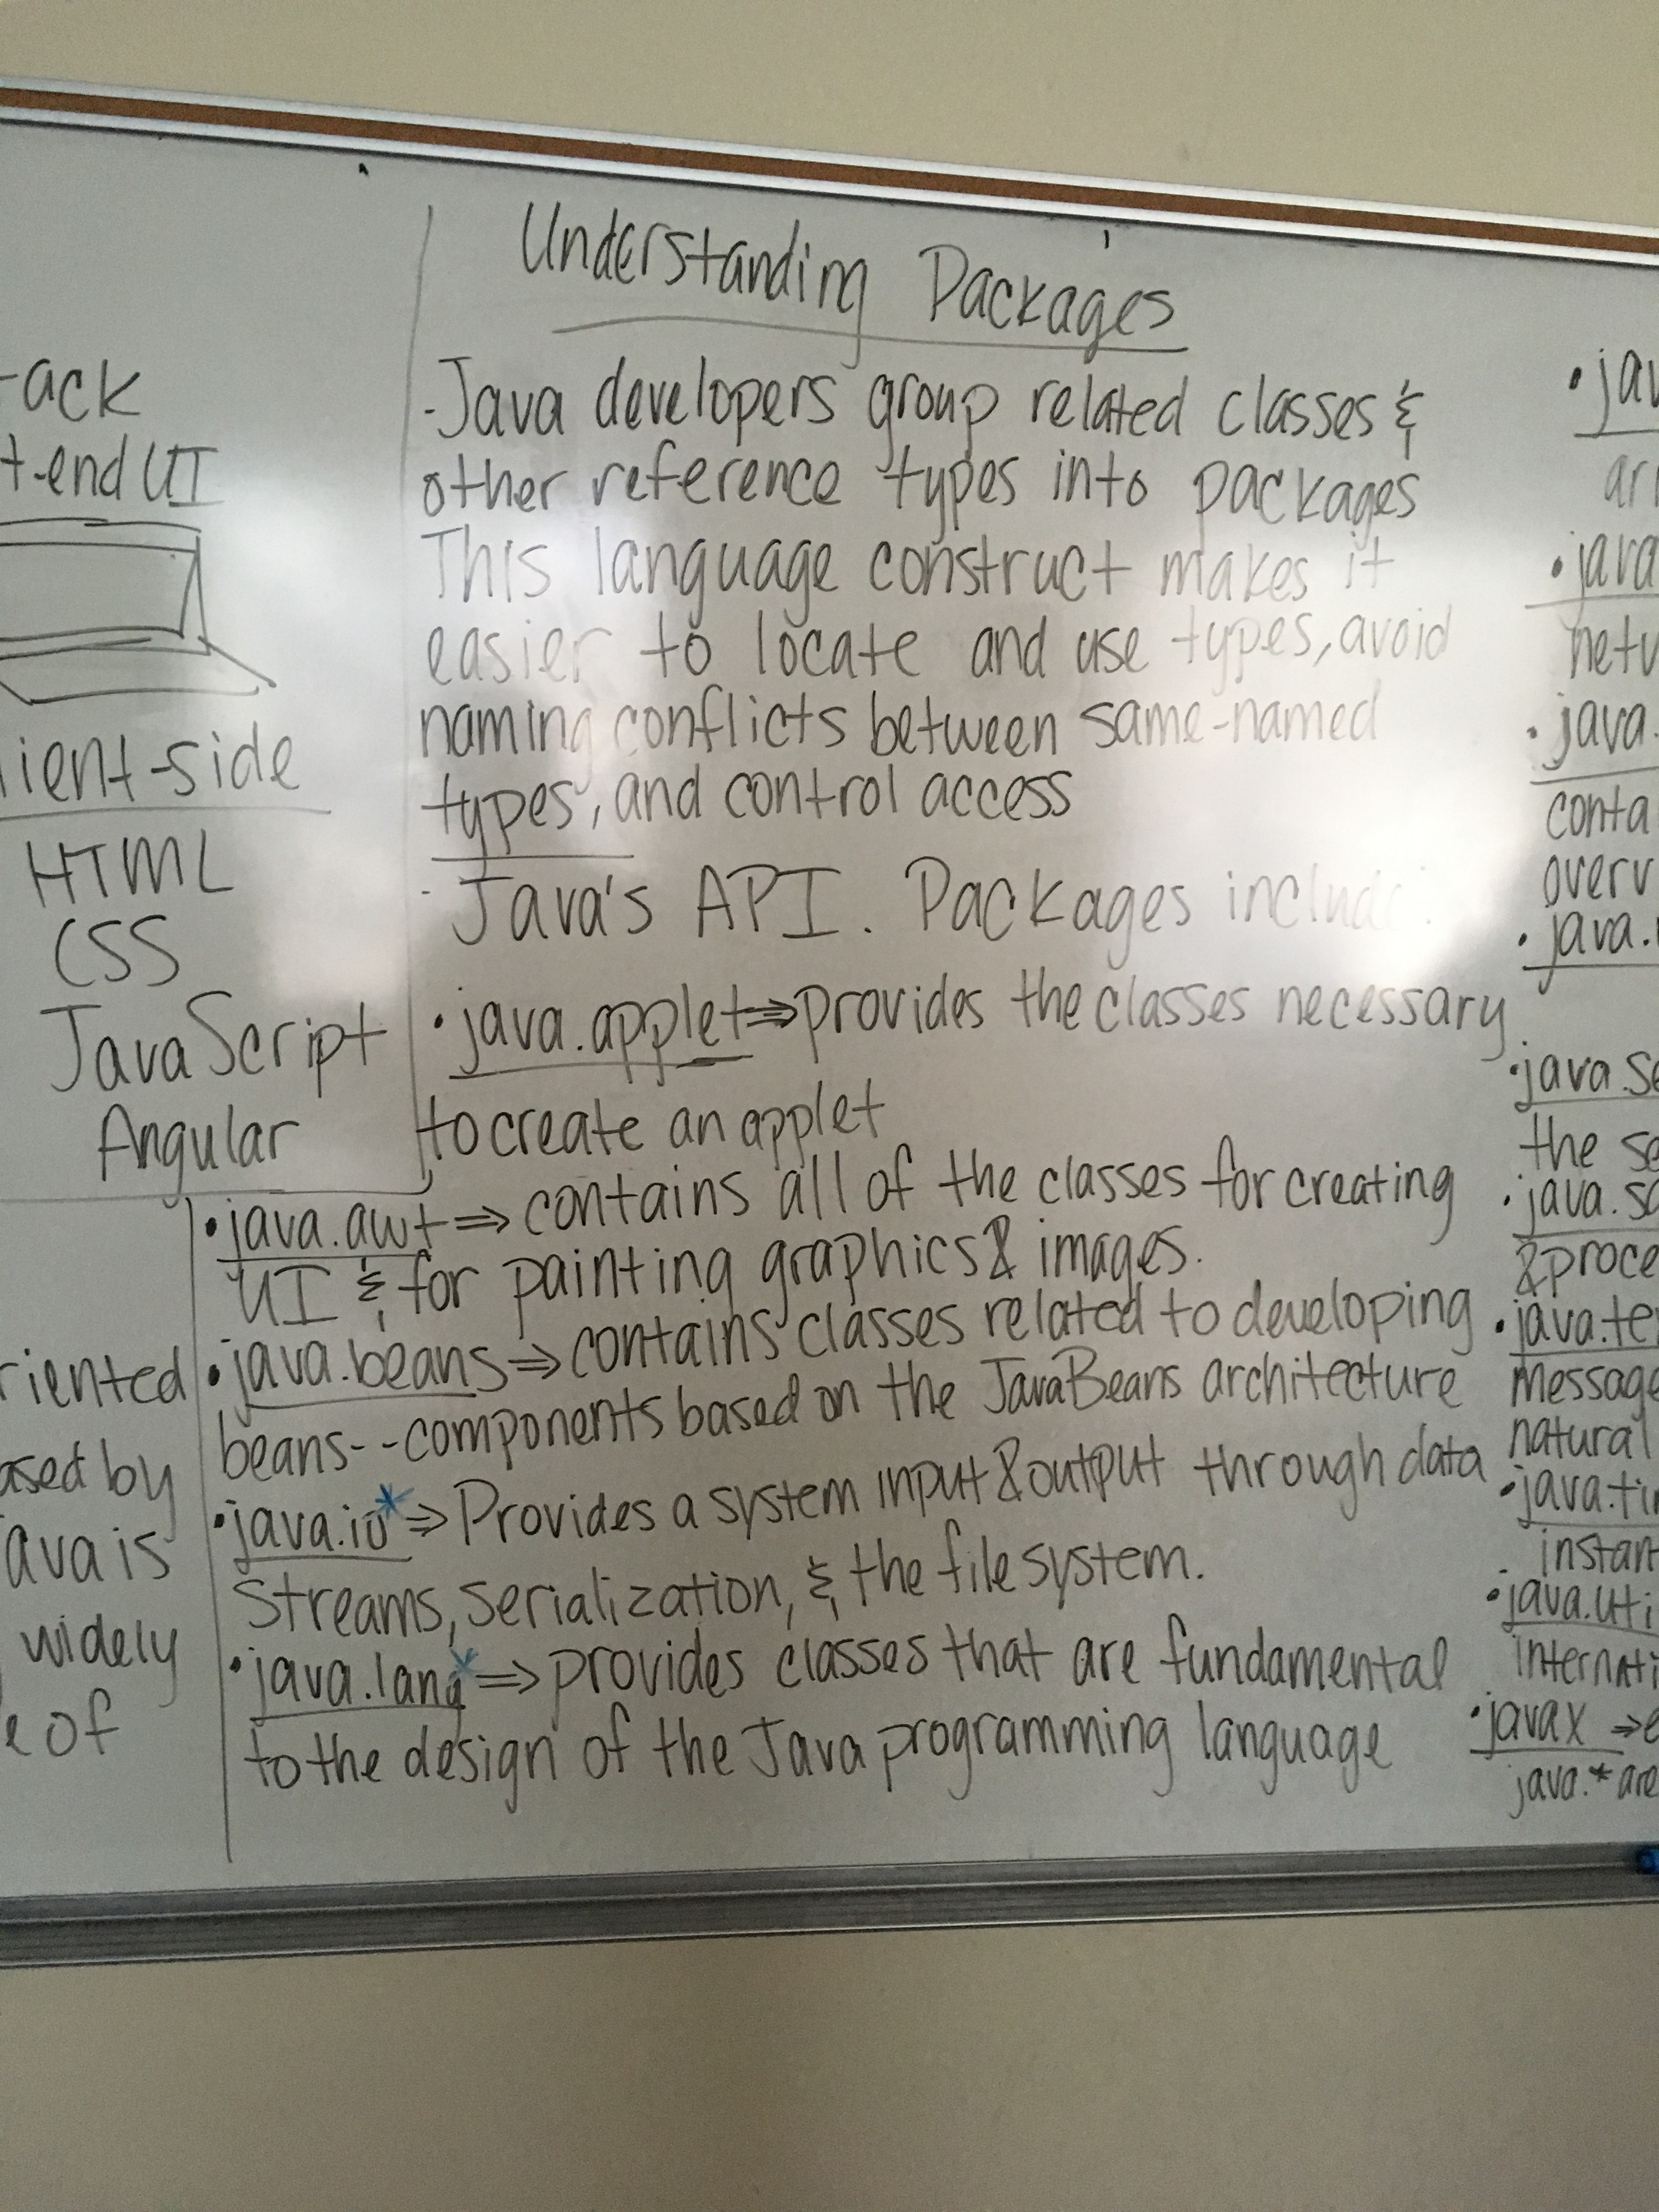 Understanding Packages
-Java developers group related classes &
other reference types into packages
This language construct makes it
easier to locate and use types, avoid
naming conflicts between same-named
types, and control access
- Java's API. Packages
• java.applet ⇒ provides the classes necessary
to create an applet
• java.awt ⇒ contains all of the classes for creating
UI & for painting graphics & images.
• java.beans ⇒ contains classes related to developing
beans--components based on the JavaBeans architecture
• java.io* ⇒ Provides a system input & output through data
streams, serialization, & the file system.
• java.lang* ⇒ provides classes that are fundamental
to the design of the Java programming language
-end UI
-side
HTML
CSS
JavaScript
Angular
by
is
widely
of
• java.
• java.
the
• java.
&
• java.
natural
• java.
• java.
• javax ⇒
java.*